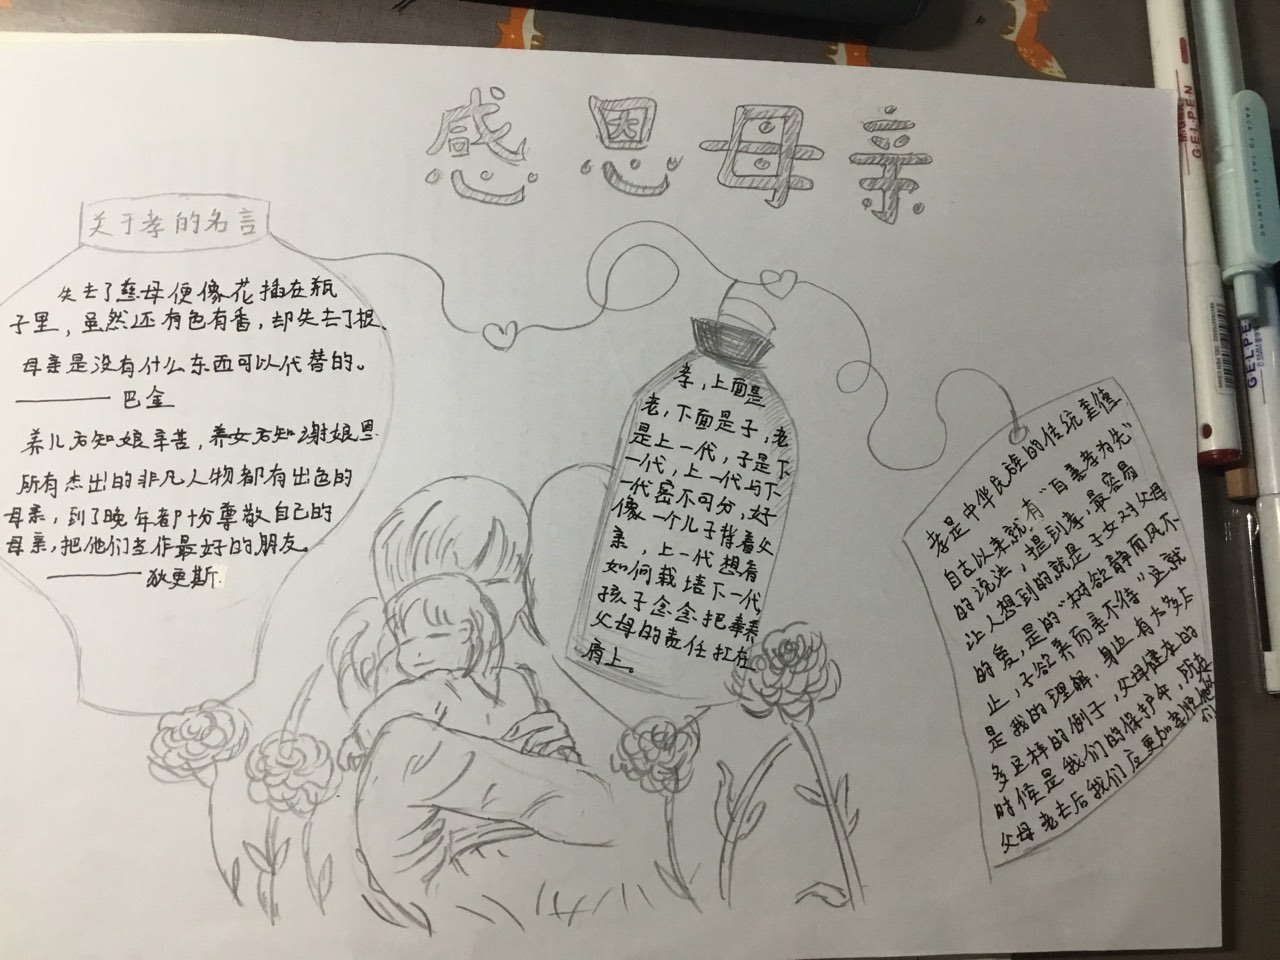 感恩母亲
关于孝的名言
失去了慈母便像花插在瓶
子里，虽然还有色有香，却失去了根、
母亲是没有什么东西可以代替的。
——— 巴金
养儿方知娘辛苦，养女方知谢娘恩
所有杰出的非凡人物都有出色的
母亲，到了晚年都十分尊敬自己的
母亲，把他们当作最好的朋友。
——— 狄更斯
孝，上面是
老，下面是子，老
是上一代，子是下
一代，上一代与下
一代密不可分，好
像一个儿子背着父
亲，上一代想着
如何栽培下一代，
孩子念念把奉养
父母的责任扛在
肩上。
孝是中华民族的传统美德
自古以来就有“百善孝为先”
的说法，提到孝，最容易
让人想到的就是子女对父母
的爱，是的“树欲静而风不
止，子欲养而亲不待”这就
是我的理解，身边有太多太
多这样的例子，父母健在的
时候是我们的保护伞，所有
父母老去后我们应更加孝敬他们
GELPEN
BACK TO THE BIGINNING
GELPEN